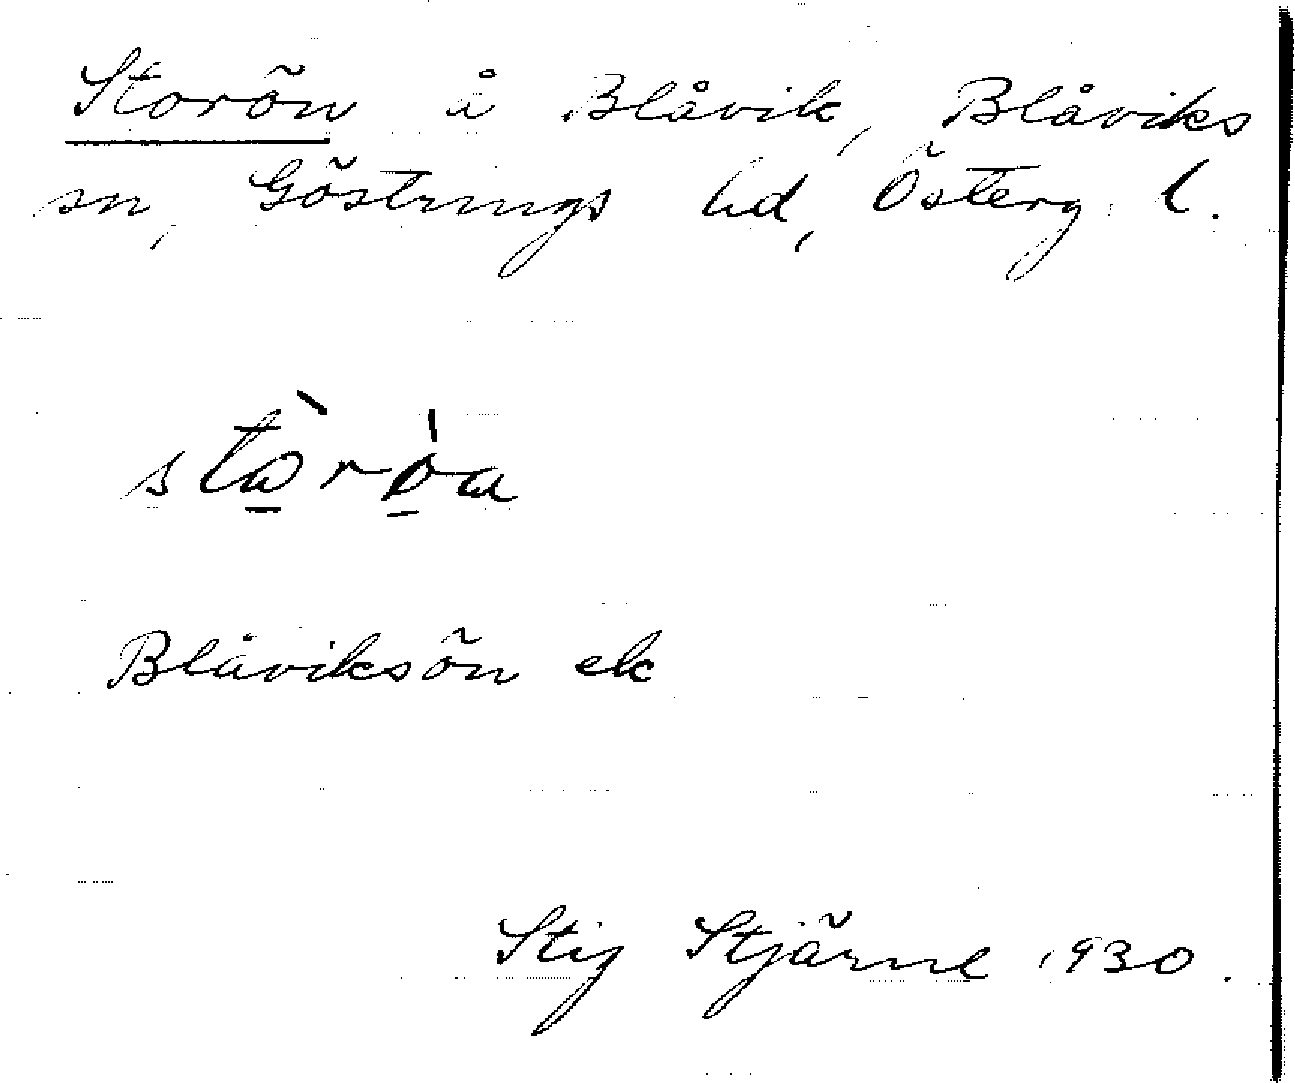 Storön å Blåvik, Blåviks
sn, Göstrings hd, Österg. l.
stòrø̍a
Blåviksön ek
Stig Stjärne 1930.